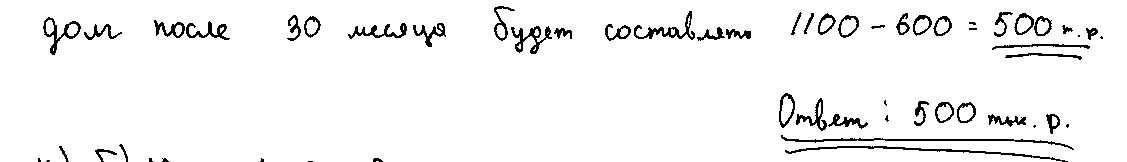 долг после 30 месяца будет составлять 1100 - 600 = 500 т.р.
Ответ: 500 тыс. р.